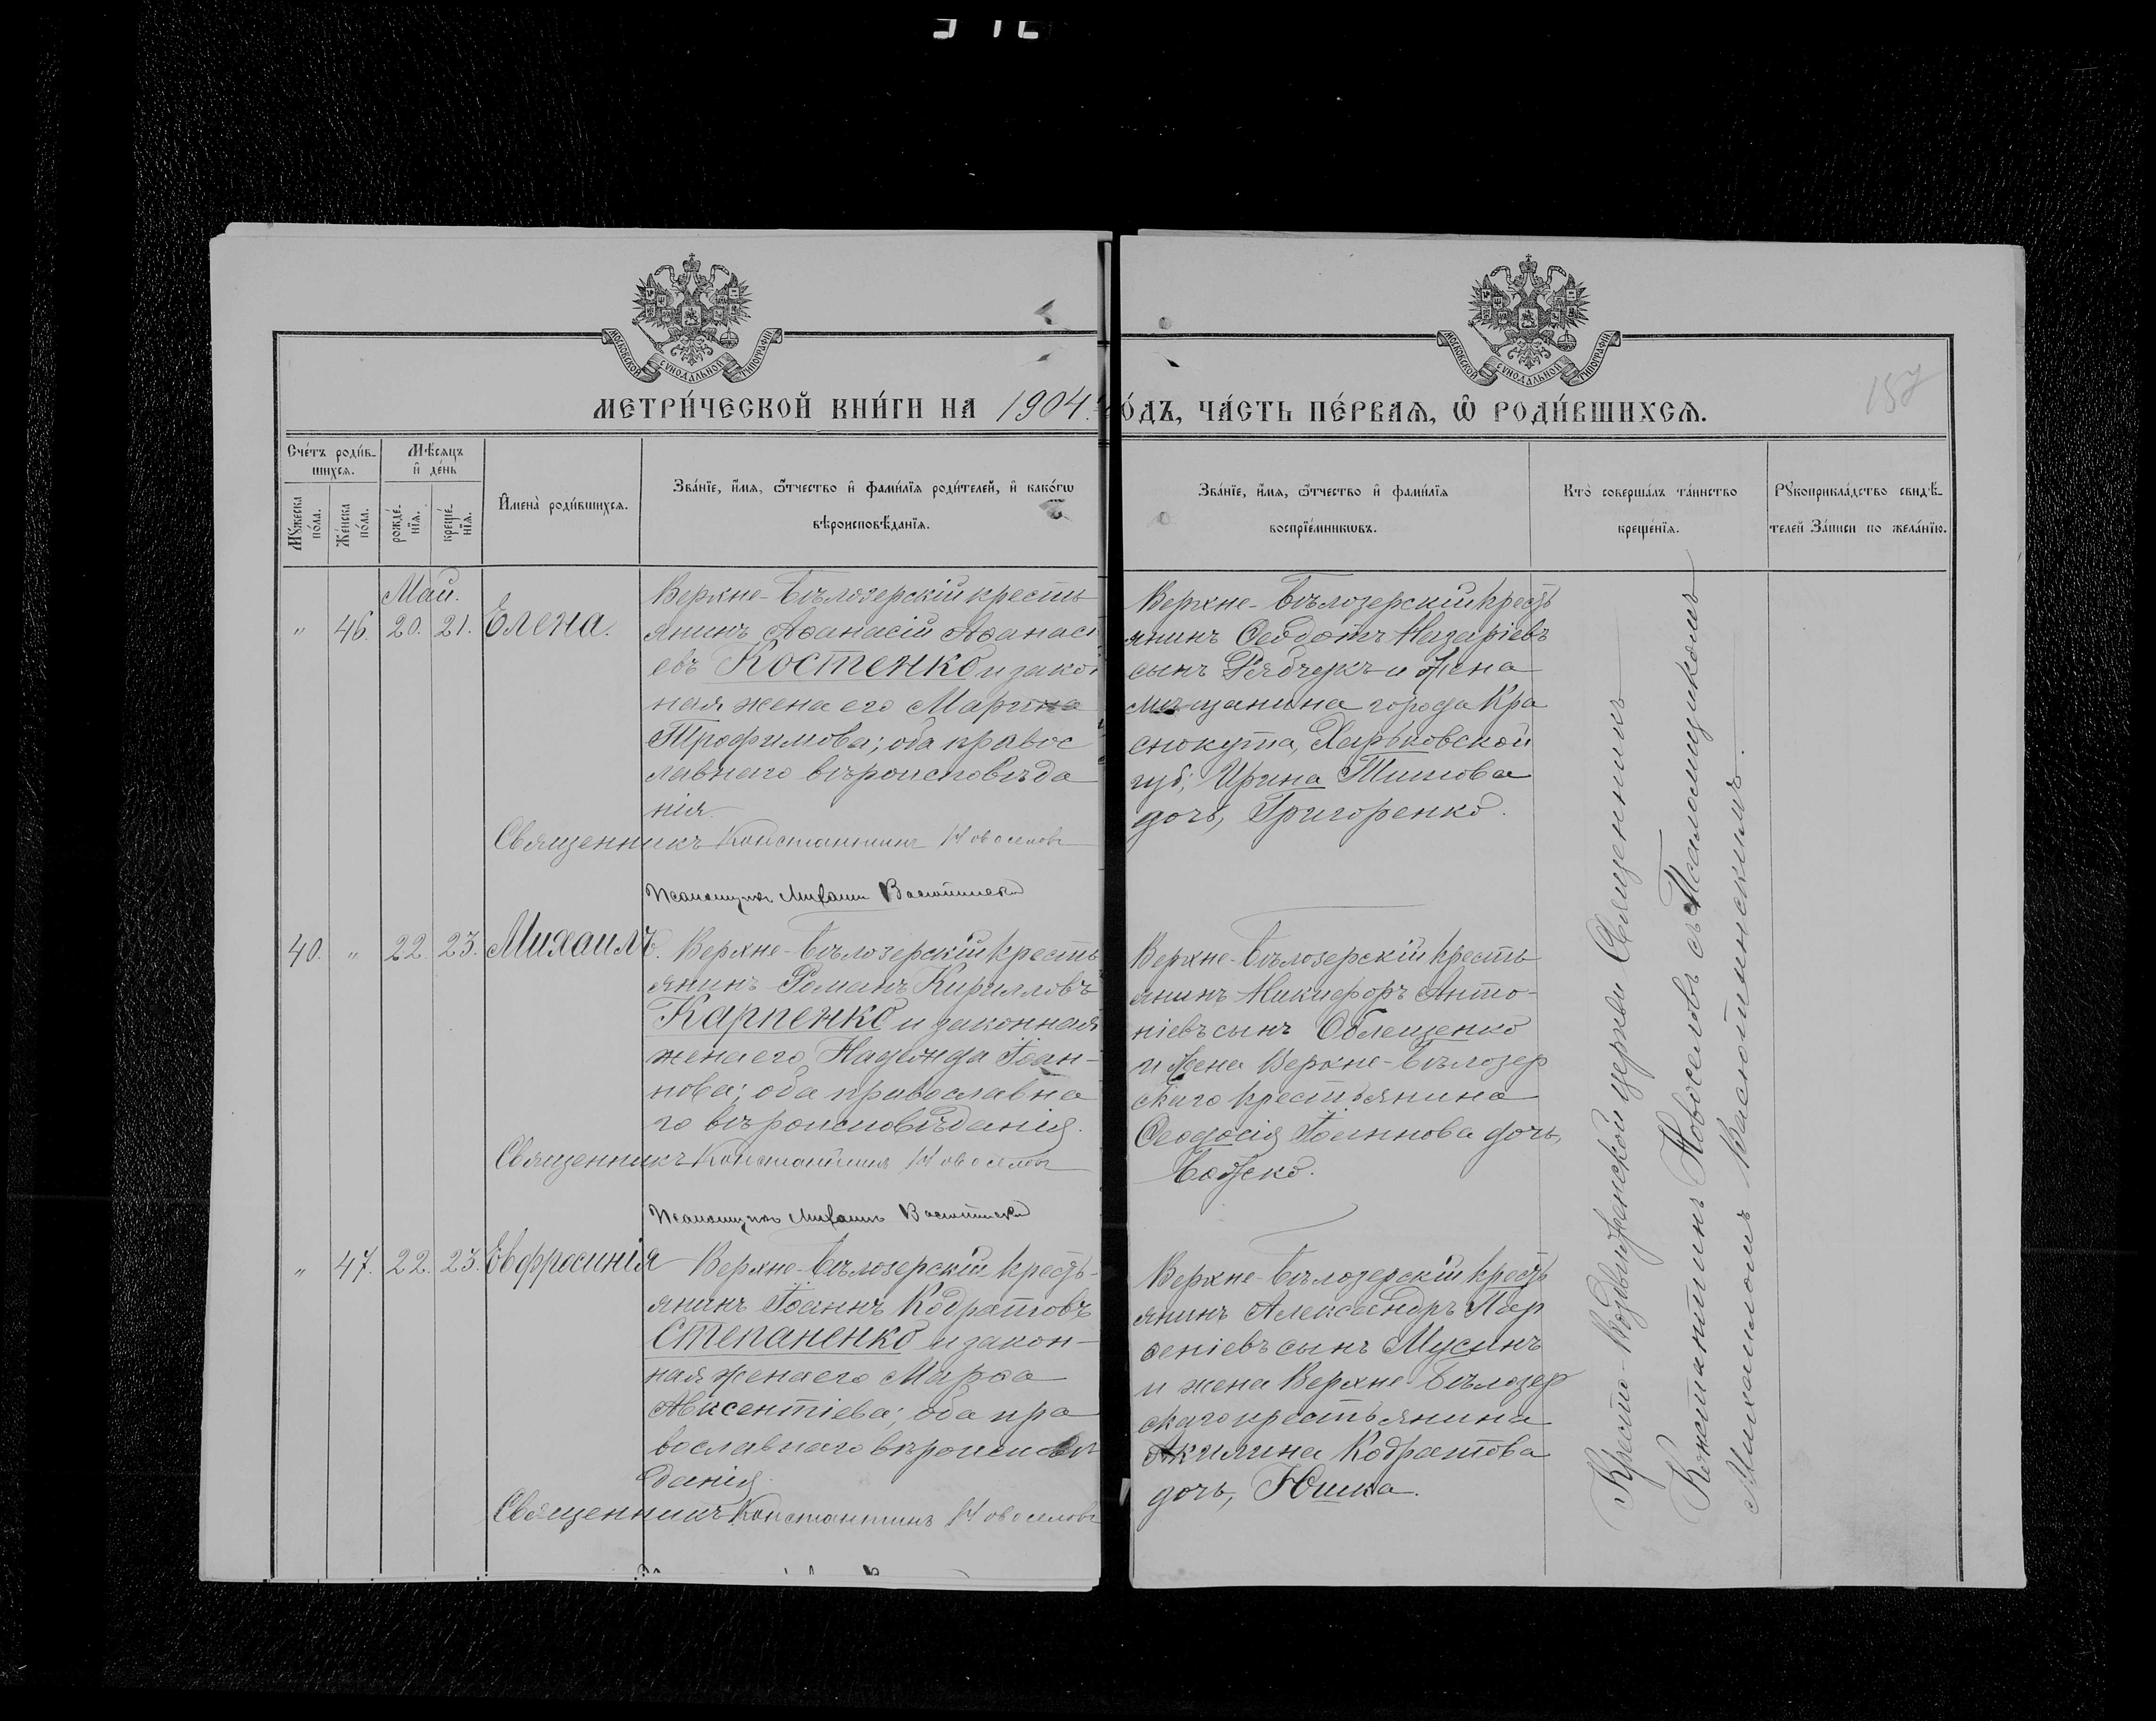 МОСКОВСКОЙ СѴНОДАЛЬНОЙ ТИПОГРАФІИ
МОСКОВСКОЙ СѴНОДАЛЬНОЙ ТИПОГРАФІИ
МЕТРИ́ЧЕСКОЙ КНИ́ГИ НА 1904 ГО́ДЪ, ЧА́СТЬ ПЕ́РВАѦ, Ѿ РОДИ́ВШИХСѦ.
157
Сче́тъ роди́в-
шихсѧ.
Мꙋ́жеска по́ла.
Же́нска по́ла.
Мѣ́сѧцъ
и҆ де́нь
рожде́-
нїѧ.
креще́-
нїѧ.
И҆мена̀ роди́вшихсѧ.
Зва́нїе, и҆́мѧ, ѻ҆́тчество и҆ фами́лїѧ роди́телей, и҆ како́гѡ
вѣроисповѣ́данїѧ.
Зва́нїе, и҆́мѧ, ѻ҆́тчество и҆ фами́лїѧ
воспрїе́мникѡвъ.
Кто̀ соверша́лъ та́инство
креще́нїѧ.
Рꙋкоприкла́дство свидѣ́-
телей За́писи по жела́нїю.
Май.
" 46. 20. 21. Елена.
Верхне-Бѣлозерскій кресть
янинъ Аѳанасій Аѳанась
евъ Костенко и закон
ная жена его Марина
Трофимова; оба правос
лавнаго вѣроисповѣда
нія.
Священникъ Константинъ Новоселовъ
Псаломщикъ Михаилъ Васютинскій
Верхне-Бѣлозерскій кресть
янинъ Ѳеодотъ Назаріевъ
сынъ Рябчукъ и жена
мѣщанина города Кра
снокута, Харьковской
губ; Ирина Титова
дочь, Григоренко.
40. " 22. 23. Михаилъ.
Верхне-Бѣлозерскій кресть
янинъ Романъ Кирилловъ
Карпенко и законная
жена его Надежда Іоан-
нова; оба православна
го вѣроисповѣданія.
Священникъ Константинъ Новоселовъ
Псаломщикъ Михаилъ Васютинскій
Верхне-Бѣлозерскій кресть
янинъ Никифоръ Анто-
ніевъ сынъ Облещенко
и жена Верхне-Бѣлозер
скаго крестьянина
Ѳеодосія Іоаннова дочь,
Божко.
" 47. 22. 23. Евфросинія
Верхне-Бѣлозерскій кресть-
янинъ Іоаннъ Кодратовъ
Степаненко и закон-
ная жена его Марѳа
Авксентіева; оба пра
вославнаго вѣроисповѣ
данія.
Священникъ Константинъ Новоселовъ
Верхне-Бѣлозерскій кресть
янинъ Александръ Пар
ѳеніевъ сынъ Мусинъ
и жена Верхне-Бѣлозер
скаго крестьянина
Акилина Кодратова
дочь, Юшка.
Кресто-Воздвиженской церкви Священникъ
Константинъ Новоселовъ съ Псаломщикомъ
Михаиломъ Васютинскимъ.